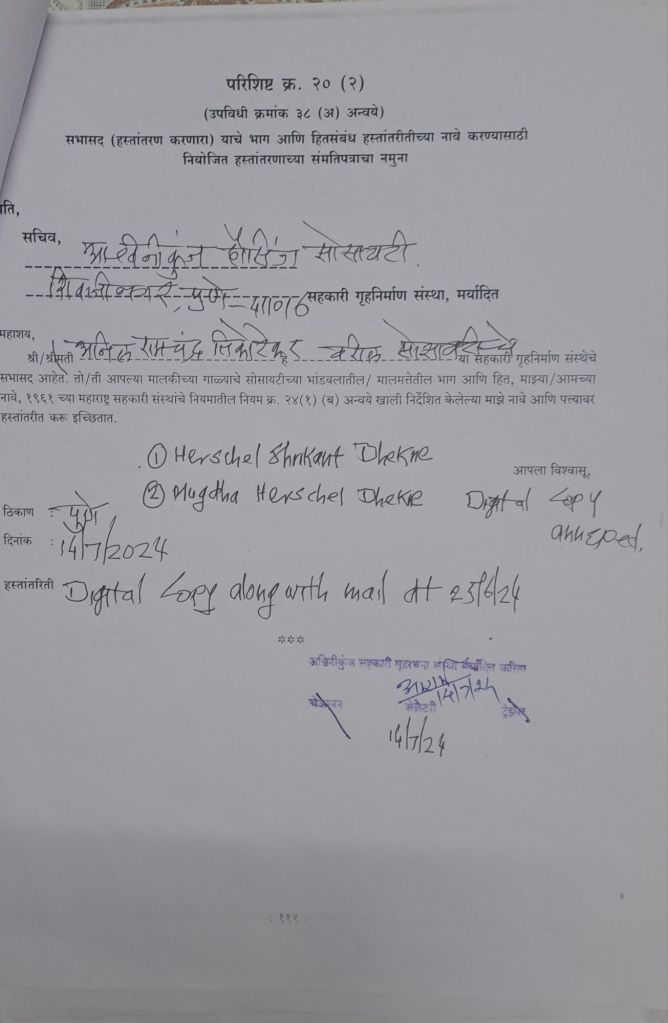 परिशिष्ट क्र. २० (२)
(उपविधी क्रमांक ३८ (अ) अन्वये)
सभासद (हस्तांतरण करणारा) याचे भाग आणि हितसंबंध हस्तांतरीतीच्या नावे करण्यासाठी
नियोजित हस्तांतरणाच्या संमतिपत्राचा नमुना
ति,
सचिव,
हौसिंग सोसायटी.
पुणे - सहकारी गृहनिर्माण संस्था, मर्यादित
महाशय,
श्री/श्रीमती अनिल रामचंद्र वरील या सहकारी गृहनिर्माण संस्थेचे
सभासद आहेत. तो/ती आपल्या मालकीच्या गाळ्याचे सोसायटीच्या भांडवलातील/ मालमत्तेतील भाग आणि हित, माझ्या/आमच्या
नावे, १९६१ च्या महाराष्ट्र सहकारी संस्थांचे नियमातील नियम क्र. २४(१) (ब) अन्वये खाली निर्देशित केलेल्या माझे नावे आणि पत्त्यावर
हस्तांतरीत करू इच्छितात.
① Herschel Shrikant Dhekne
आपला विश्वासू,
② Mugdha Herschel Dhekne Digital Copy
ठिकाण : पुणे,
annexed.
दिनांक : 14/7/2024
हस्तांतरिती Digital Copy along with mail dt 25/6/24
***
अश्विनीकुंज सहकारी गृहरचना संस्था मर्यादित करिता
14/7/24
चेअरमन सेक्रेटरी ट्रेझरर
14/7/24
: १११ :